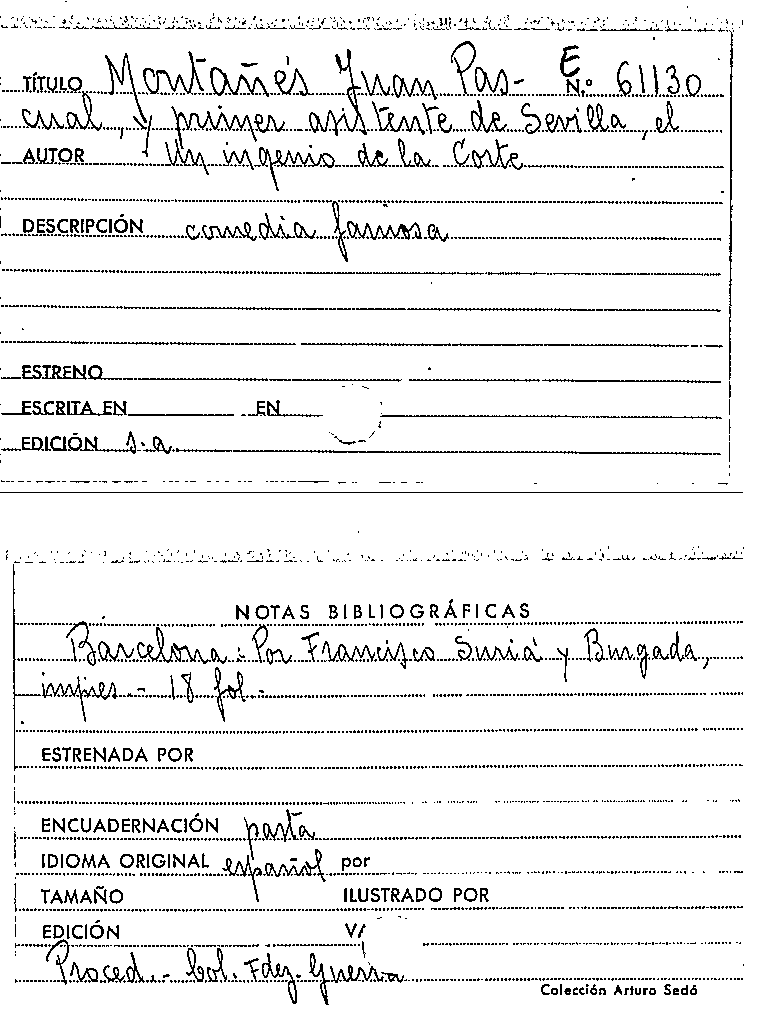 TÍTULO Montañés Juan Pas- E N.º 61130
cual, y primer asistente de Sevilla, el
AUTOR Un ingenio de la Corte
DESCRIPCIÓN comedia famosa
ESTRENO
ESCRITA EN EN
EDICIÓN s.a.
NOTAS BIBLIOGRÁFICAS
Barcelona: Por Francisco Suriá y Burgada,
impres.- 18 fol.-
ESTRENADA POR
ENCUADERNACIÓN pasta
IDIOMA ORIGINAL español por
TAMAÑO ILUSTRADO POR
EDICIÓN V/
Proced.- Col. Fdez-Guerra
Colección Arturo Sedó